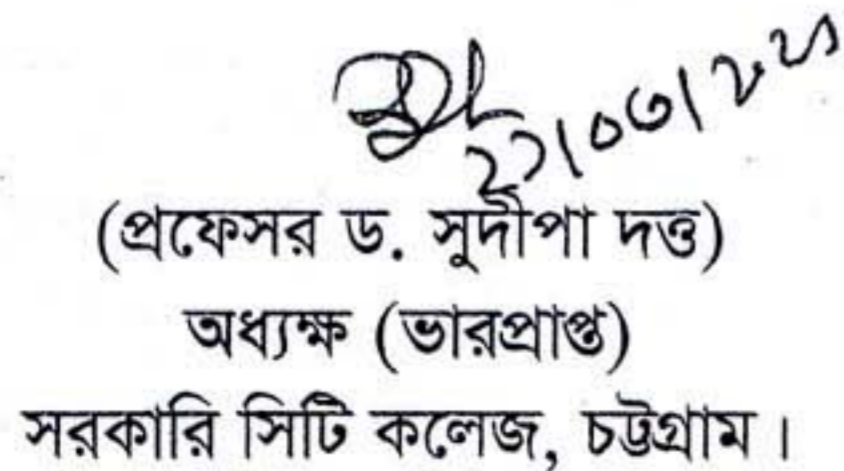 (প্রফেসর ড. সুদীপা দত্ত)
অধ্যক্ষ (ভারপ্রাপ্ত)
সরকারি সিটি কলেজ, চট্টগ্রাম।